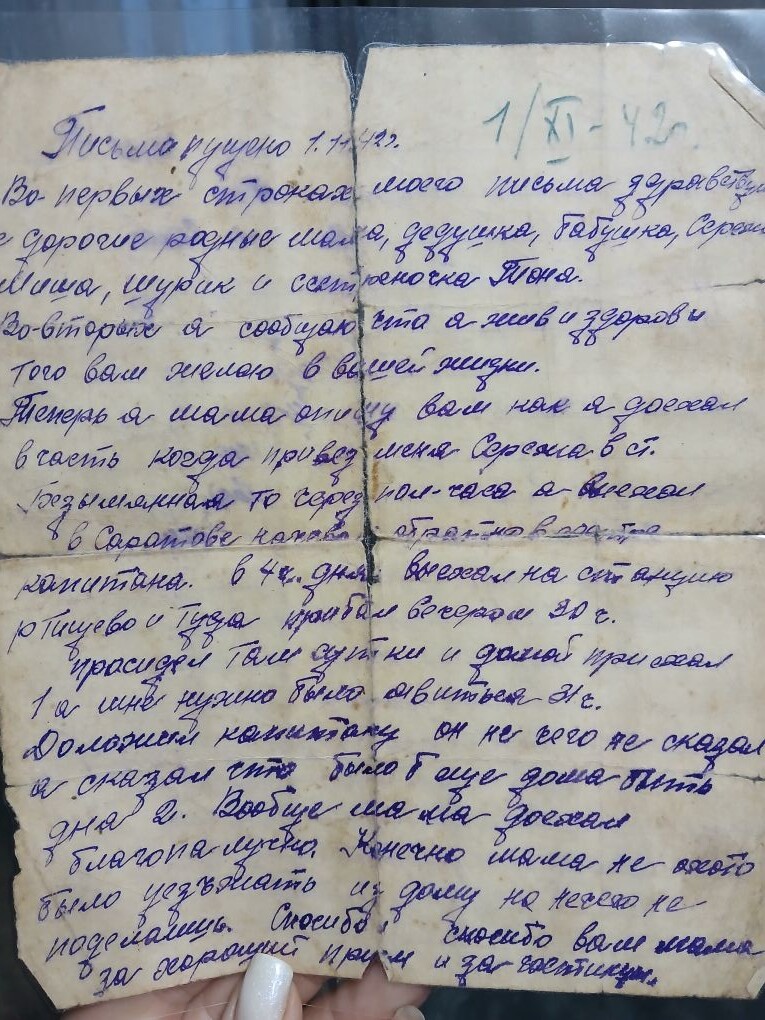 1/XI-42г.
Письмо пущено 1.11.42г.
Во-первых строках моего письма здравствуй
е дорогие родные мама, дедушка, бабушка, Сережа
Миша, Шурик и сестреночка Тоня.
Во-вторых я сообщаю что я жив и здоров и
того вам желаю в вашей жизни.
Теперь я мама опишу вам как я доехал
в часть когда привез меня Сережа в ст.
Безымянная то через пол-часа я выехал
в Саратове обратно в
капитана. в 4 ч. дня выехал на станцию
ртищево и туда прибыл вечером 30 ч.
просидел там сутки и домой приехал
1 а мне нужно было явиться 31 ч.
Доложил капитану он не чего не сказал
а сказал что было б еще дома быть
дня 2. Вообще мама доехал
благопалучно. Конечно мама не охото
было уезъжать из дому но нечего не
поделаишь. Спосибо, спосибо вам мама
за хороший прием и за гостинцы.